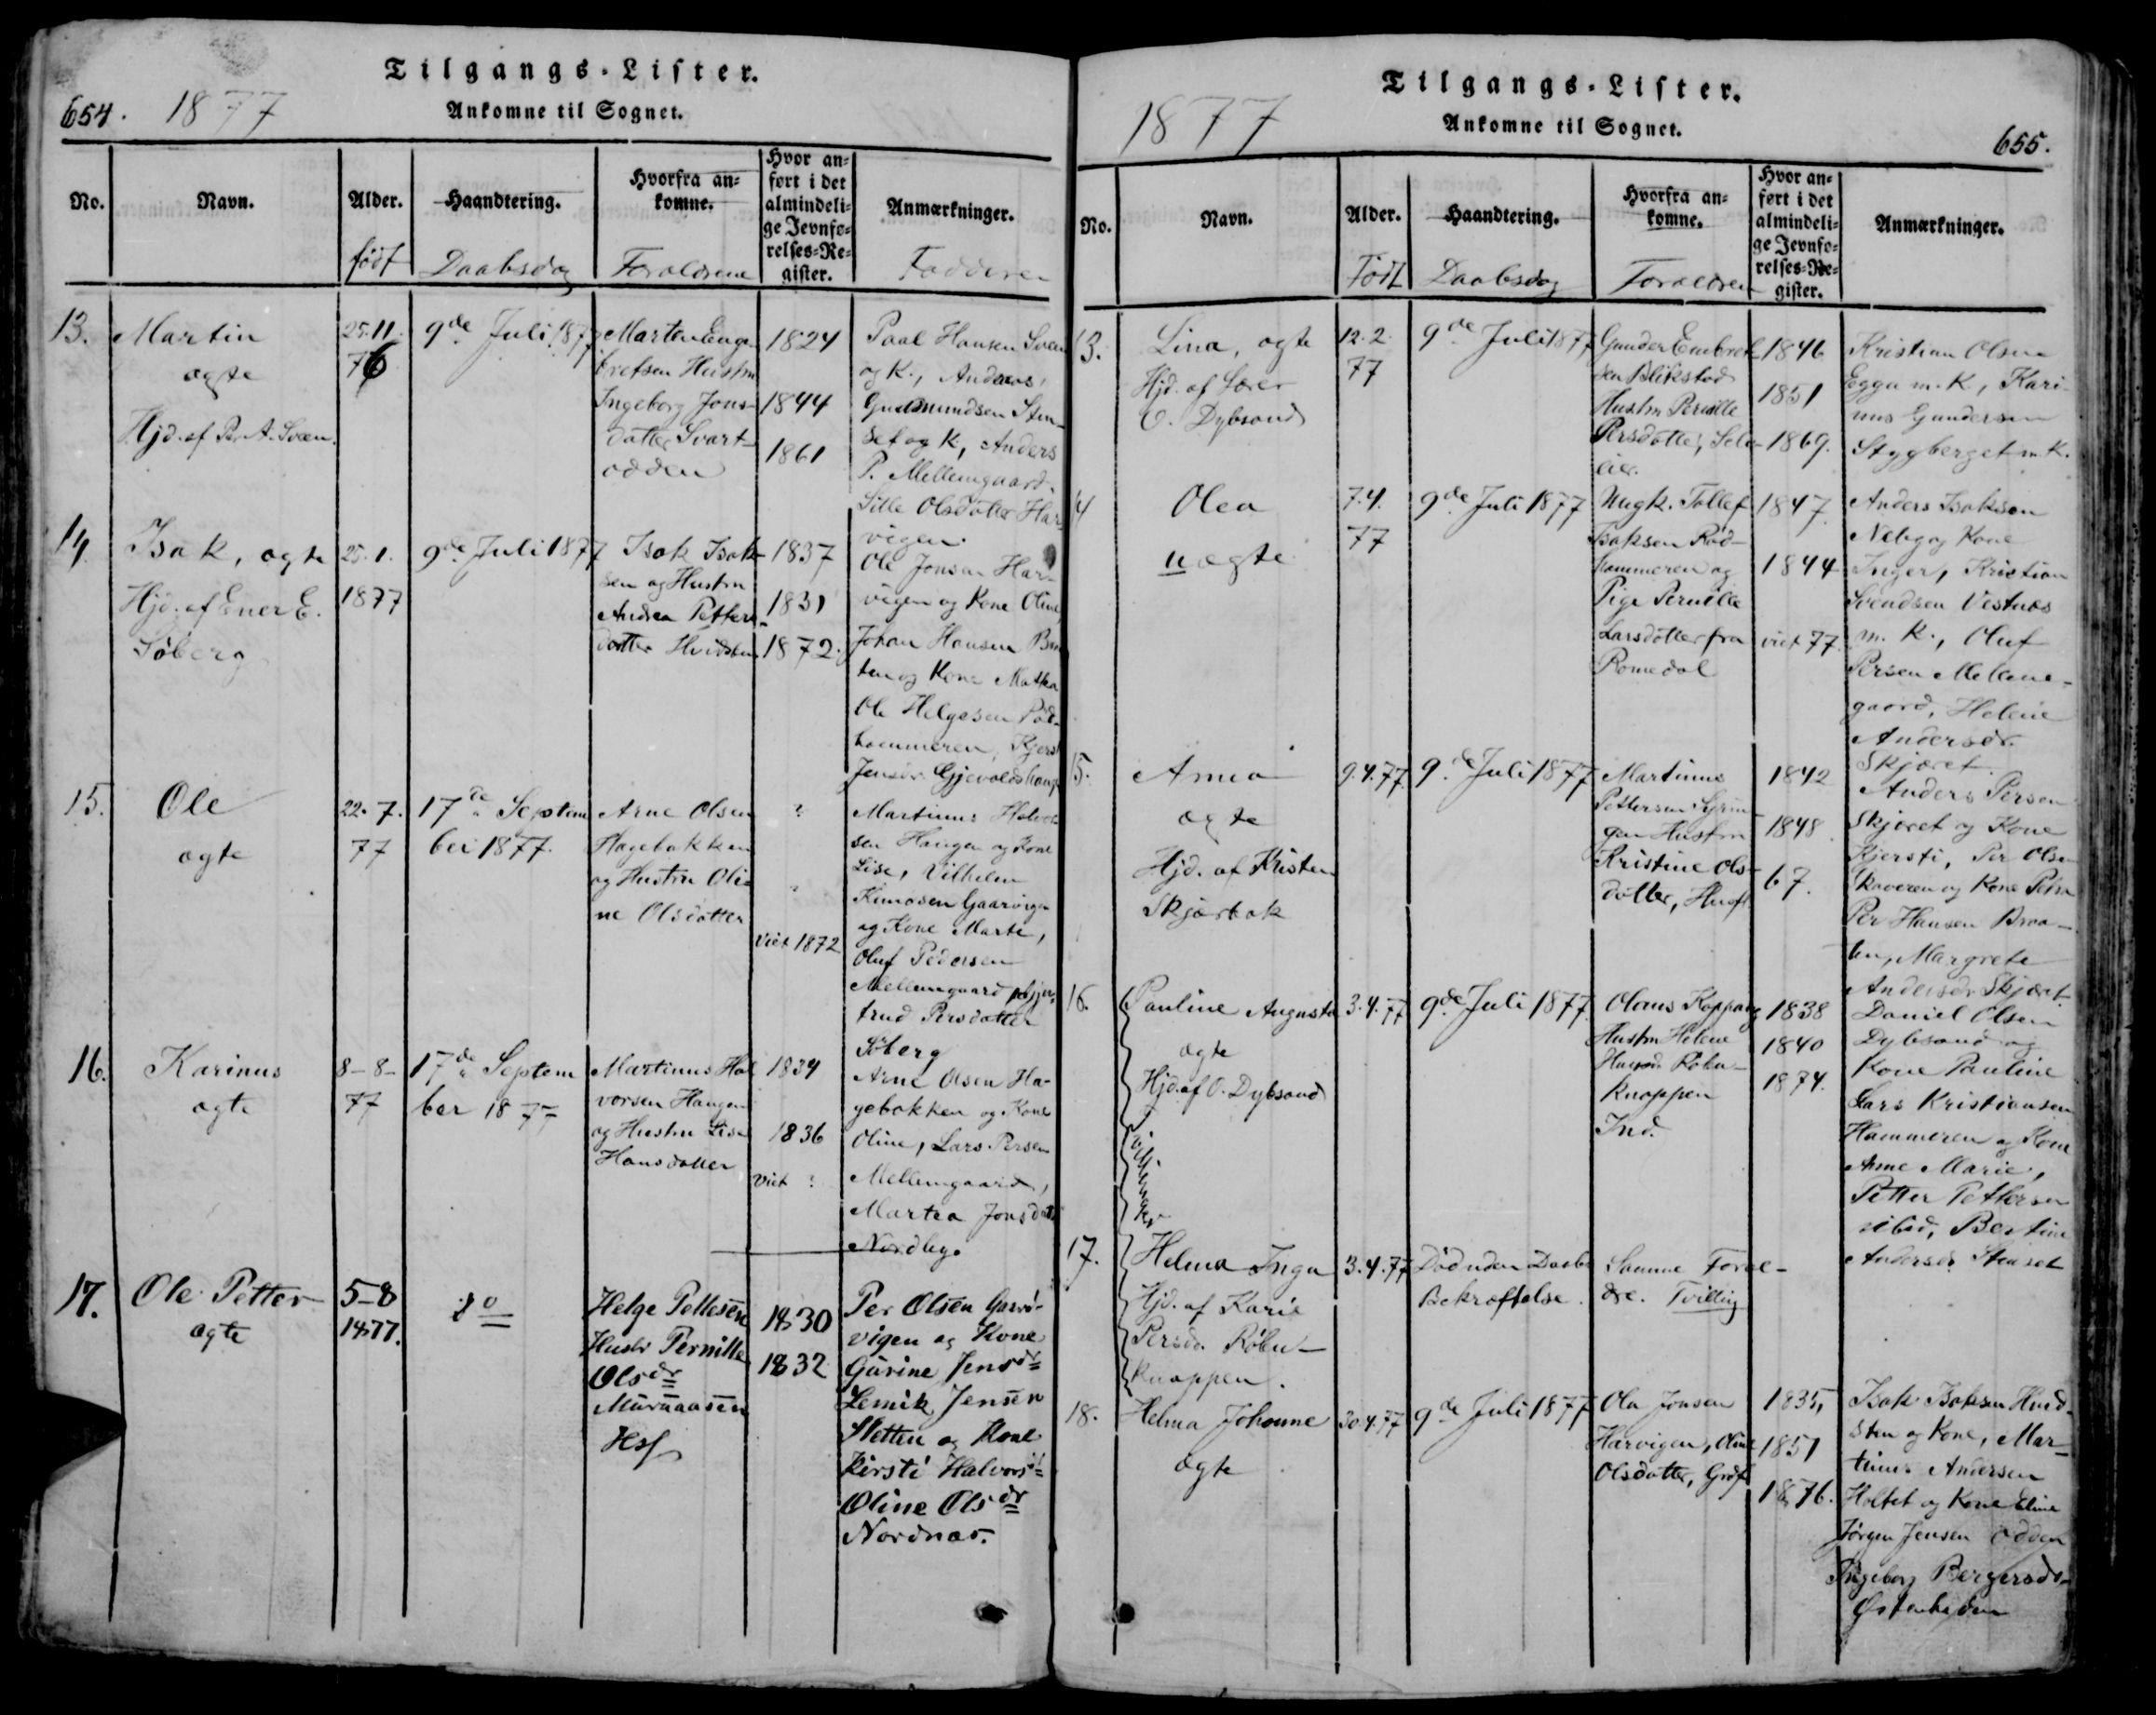 Tilgangs-Lister.
654. 1877
Ankomne til Sognet.
No. Navn. Alder. Haandtering. Hvorfra an-
komne. Hvor an-
ført i det
almindeli-
ge Jevnfø-
relses-Re-
gister. Anmærkninger.
født Daabsdag Forældrene Faddere
13. Martin
ægte
Hjd. af P. A. Sveen.
25.11.
76
9de Juli 1877
Marten Enge-
bretsen Hustru
Ingeborg Jons-
datter Svart-
odden
1824
1844
1861
Paal Hansen Sveen
og K., Anders
Gudmundsen Sten-
set og K, Anders
P. Mellemgaard,
Sille Olsdatter Har-
vigen.
14. Isak, ægte
Hjd. af Ener E.
Söberg
25.1.
1877
9de Juli 1877
Isak Isak-
sen og Hustru
Andrea Petters-
datter Hvidsten
1837
1831
1872.
Ole Jonsen Har-
vigen og Kone Oline,
Johan Hansen
og Kone Mathea
Ole Helgesen Röd-
hammeren, Kjersti
Jensdr. Gjevaldshaugen
15. Ole
ægte
22.7.
77
17de Septem
ber 1877.
Arne Olsen
Hagebakken
og Hustru Oli-
ne Olsdatter
?
?
Viet 1872
Martinus Halvor-
sen Haugen og Kone
Lise, Vilhelm
Simosen Gaarvigen
og Kone Marte,
Oluf Pedersen
Mellemgaard, Gjer-
trud Persdatter
Söberg
16. Karinus
ægte
8-8-
77
17de Septem
ber 1877
Martinus Hal
vorsen Haugen
og Hustru Lise
Hansdatter
1834
1836
viet ?
Arne Olsen Ha-
gebakken og Kone
Oline, Lars Persen
Mellemgaard,
Martea Jonsdatter
Nordbye
17. Ole Petter
ægte
5-8
1877.
do
Helge Pettesen
Hustr Pernille
Olsdr
Muruaasen
Hsf
1830
1832
Per Olsen Gaar-
vigen og Kone
Gurine Jensdr
Lemik Jensen
Sletten og Kone
Kirsti Halvorsdr
Oline Olsdr
Nordnæs.
Tilgangs-Lister.
1877
Ankomne til Sognet.
655.
No. Navn. Alder. Haandtering. Hvorfra an-
komne. Hvor an-
ført i det
almindeli-
ge Jevnfø-
relses-Re-
gister. Anmærkninger.
Född Daabsdag Forældrene
13. Lina, ægte
Hjd. af Lærer
O. Dybsand
12.2.
77
9de Juli 1877
Gunder Embret-
sen Blikstad
Hustru Pernille
Persdatter, Selv-
eier.
1846
1851
1869.
Kristian Olsen
Egga m. K, Kari-
nus Gundersen
Stygberget m. K.
14 Olea
uægte
7.4.
77
9de Juli 1877
Ungk. Tollef
Isaksen Röd-
hammeren og
Pige Pernille
Larsdatter fra
Romedal
1847
1844
viet 77.
Anders Isaksen
Neby og Kone
Inger, Kristian
Svendsen Vestnæs
m. K., Oluf
Persen Mellem-
gaard, Helene
Andersdr.
Skjæret.
15. Anna
ægte
Hjd. af Kristen
Skjærbak
9.4.77
9de Juli 1877
Martinus
Pettersen
Hustru
Kristine Ols-
datter, Husf.
1842
1848.
67.
Anders Persen
Skjæret og Kone
Kjersti, Per Olsen
og Kone Petra
Per Hansen Braa-
ten, Margrete
Andersdr Skjæret
16. Pauline Augusta
ægte
Hjd. af O. Dybsand
Tvillinger
3.4.77
9de Juli 1877.
Olaus Koppang
Hustru Helene
Hansdr. Röben-
knappen
Ind.
1838
1840
1874.
Daniel Olsen
Dybsand og
Kone Pauline
Lars Kristiansen
Hammeren og Kone
Anne Marie,
Petter Pettersen
ibid, Bertine
Andersdr. Stenset
17. Helma Inga
Hjd. af Karie
Persdr. Röben-
knappen.
3.4.77
Död uden Daabs
Bekræftelse.
Samme Foræl-
dre. Tvilling
18. Helma Johanne
ægte
30.4.77
9de Juli 1877
Ola Jonsen
Harvigen, Oline
Olsdatter, Grdf.
1835,
1851
1876.
Isak Isaksen Hvid-
sten og Kone, Mar-
tinus Andersen
Holtet og Kone Eline
Jörgen Jensen Odden
Ingeborg Bergersdr.